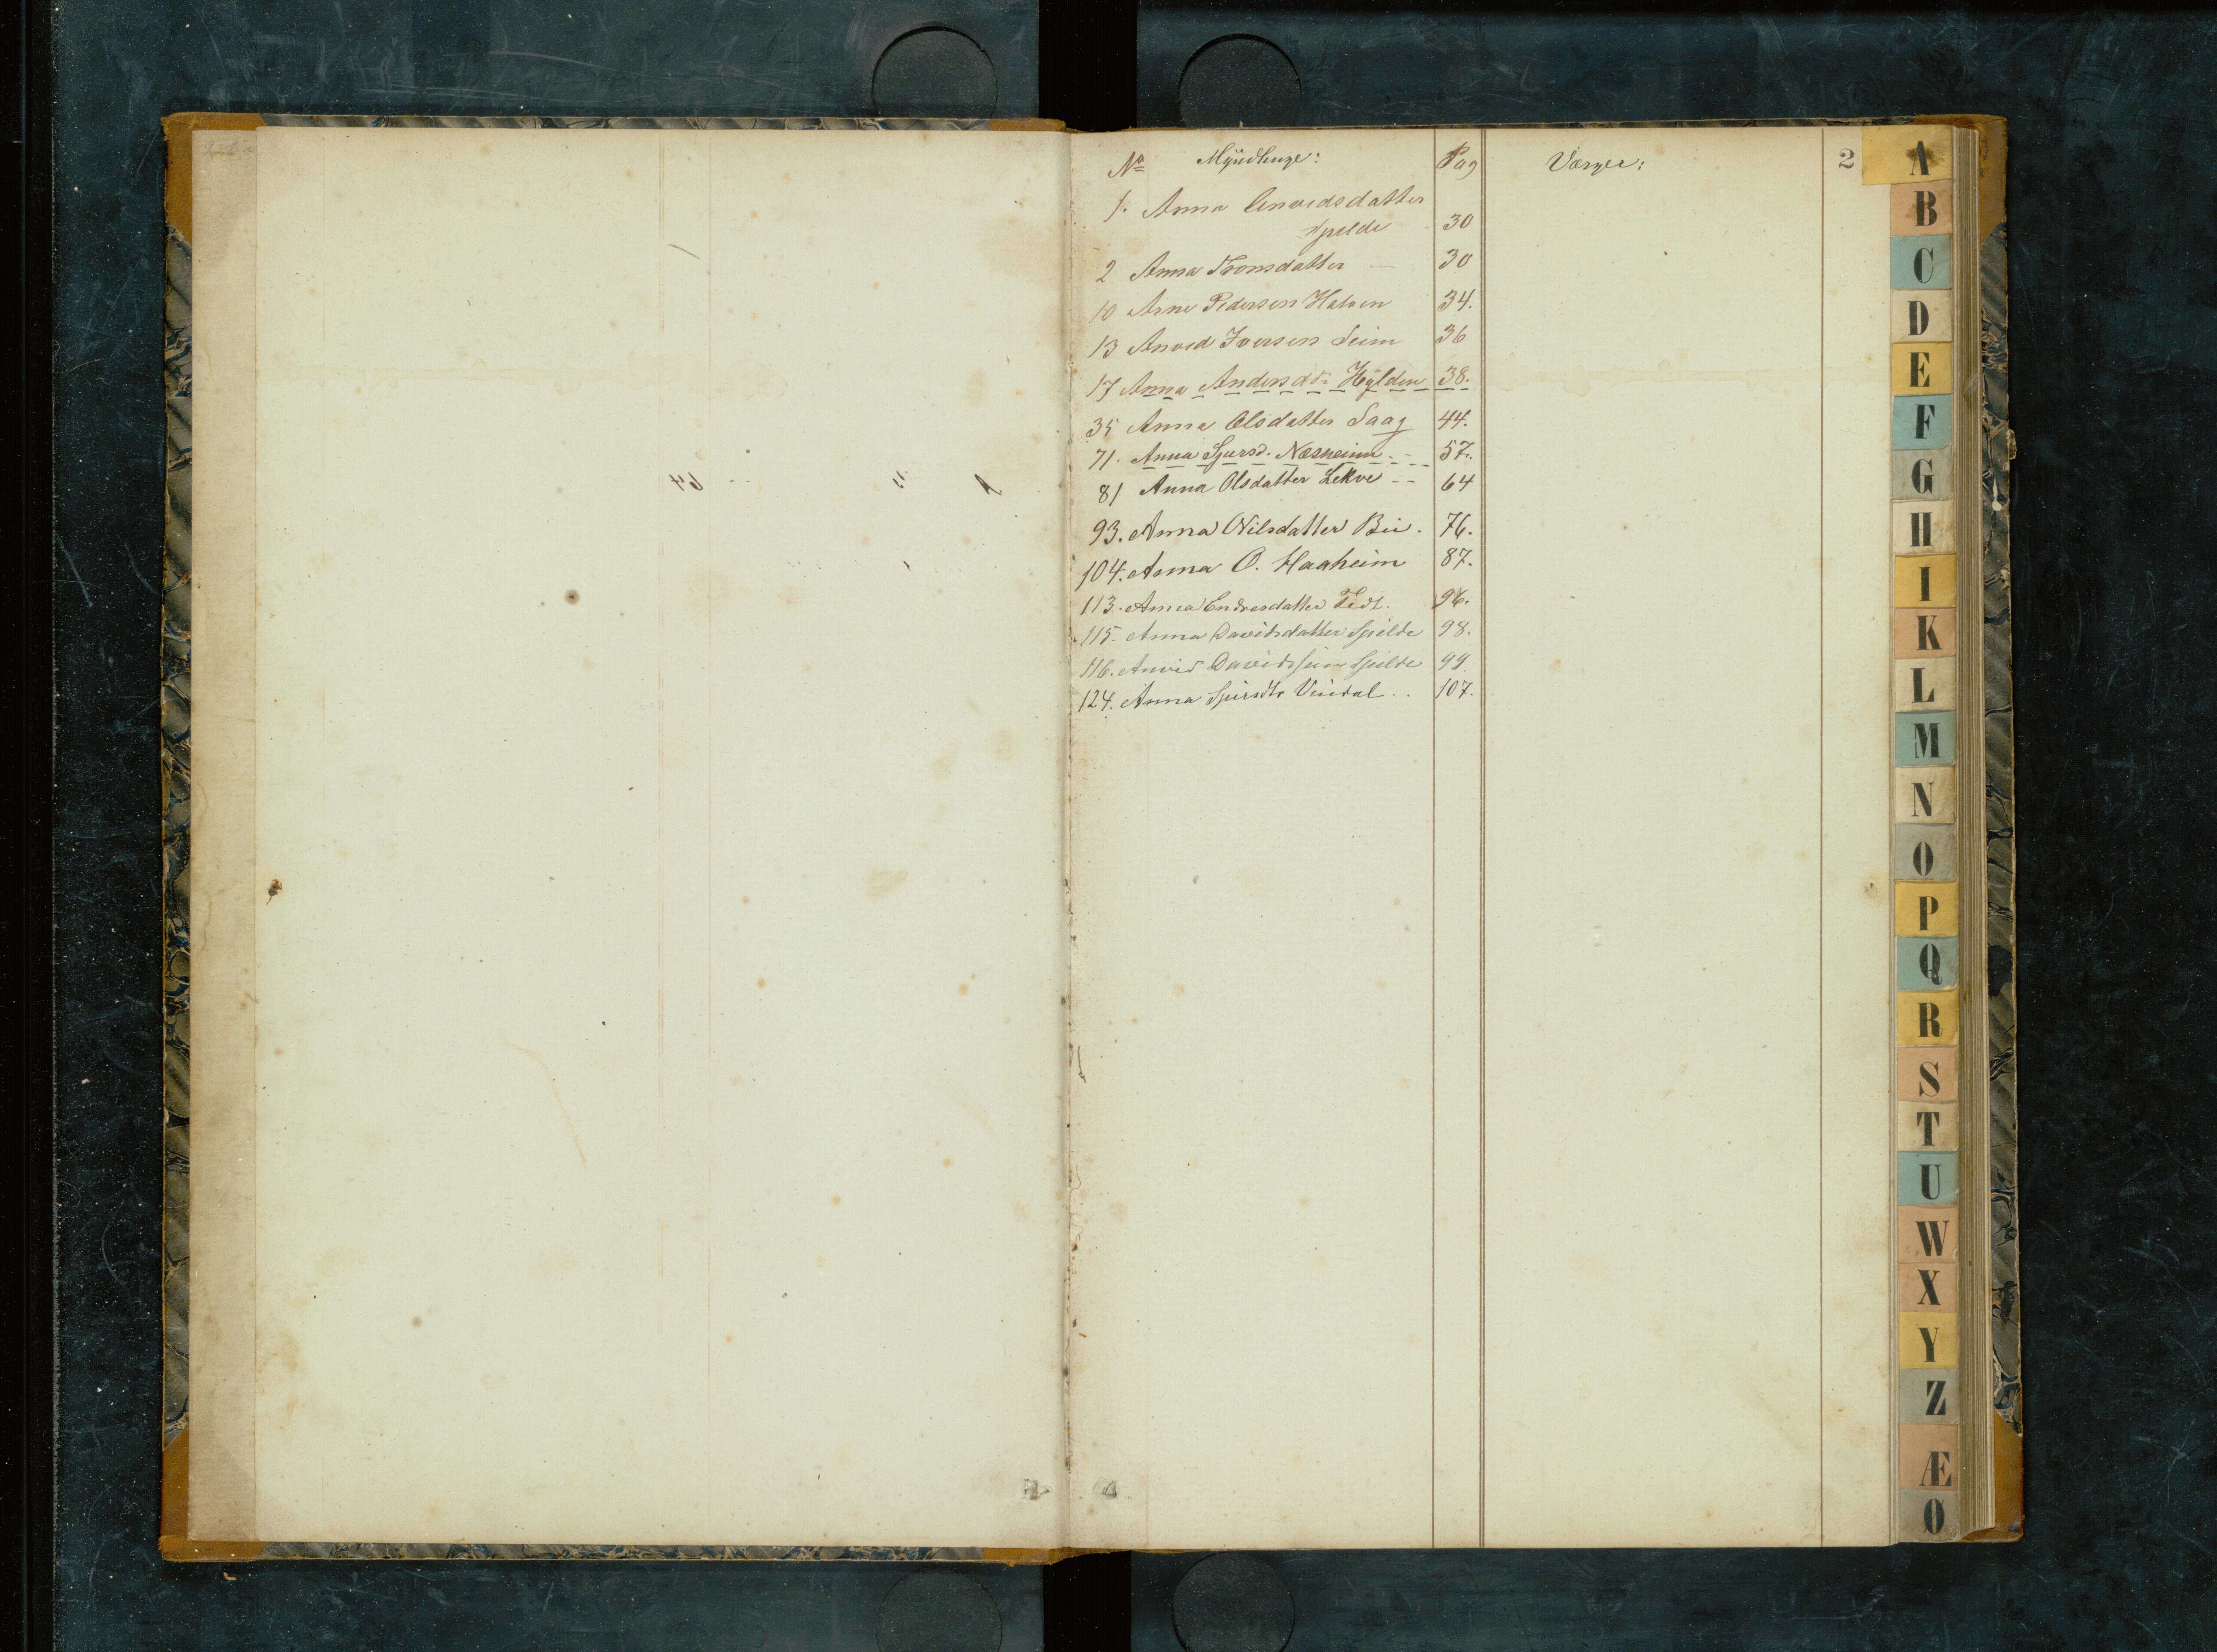 No Myndlinge: Pag Værger: 2
1. Anna Arnvedsdatter
Spilde 30
2 Anna Tronsdatter — 30
10 Arne Pedersen Halsen 34.
13 Anved Iversen Seim 36
17 Anna Andersdtr Hylden 38.
35 Anna Olsdatter Saag 44.
71. Anna Sjursd. Næsheim - - 57.
81 Anna Olsdatter Lekve - - 64
93. Anna Nilsdatter Bu. 76.
104. Anna O. Haaheim 87.
113. Anna Endresdatter Tidt. 96.
115. Anna Davidsdatter Spilde 98.
116. Anvid Davidssøn Spilde 99.
124. Anna Sjursdtr Vindal . . 107.
A
B
C
D
E
F
G
H
I
K
L
M
N
O
P
Q
R
S
T
U
W
X
Y
Z
Æ
Ø